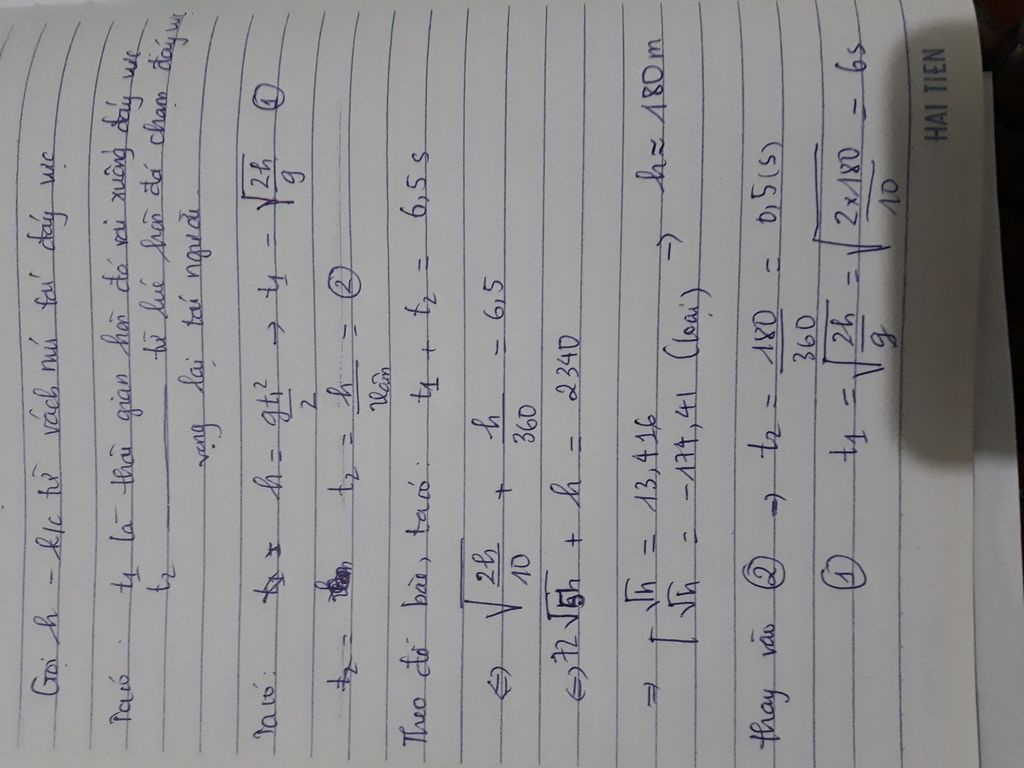 Gọi h - k/c từ vách núi tới đáy vực
Ta có: t₁ là thời gian hòn đá rơi xuống đáy vực
t₂ ———— từ lúc hòn đá chạm đáy vực
vọng lại tới người
Ta có: h = gt₁²/2 → t₁ = √(2h/g) ①
t₂ = h/Vâm ②
Theo đề bài, ta có: t₁ + t₂ = 6,5s
⇔ √(2h/10) + h/360 = 6,5
⇔ 72√5h + h = 2340
⇒ [ √h = 13,416 → h ≈ 180m
√h = -174,41 (loại)
thay vào ② → t₂ = 180/360 = 0,5(s)
① t₁ = √(2h/g) = √(2×180/10) = 6s
HAI TIEN